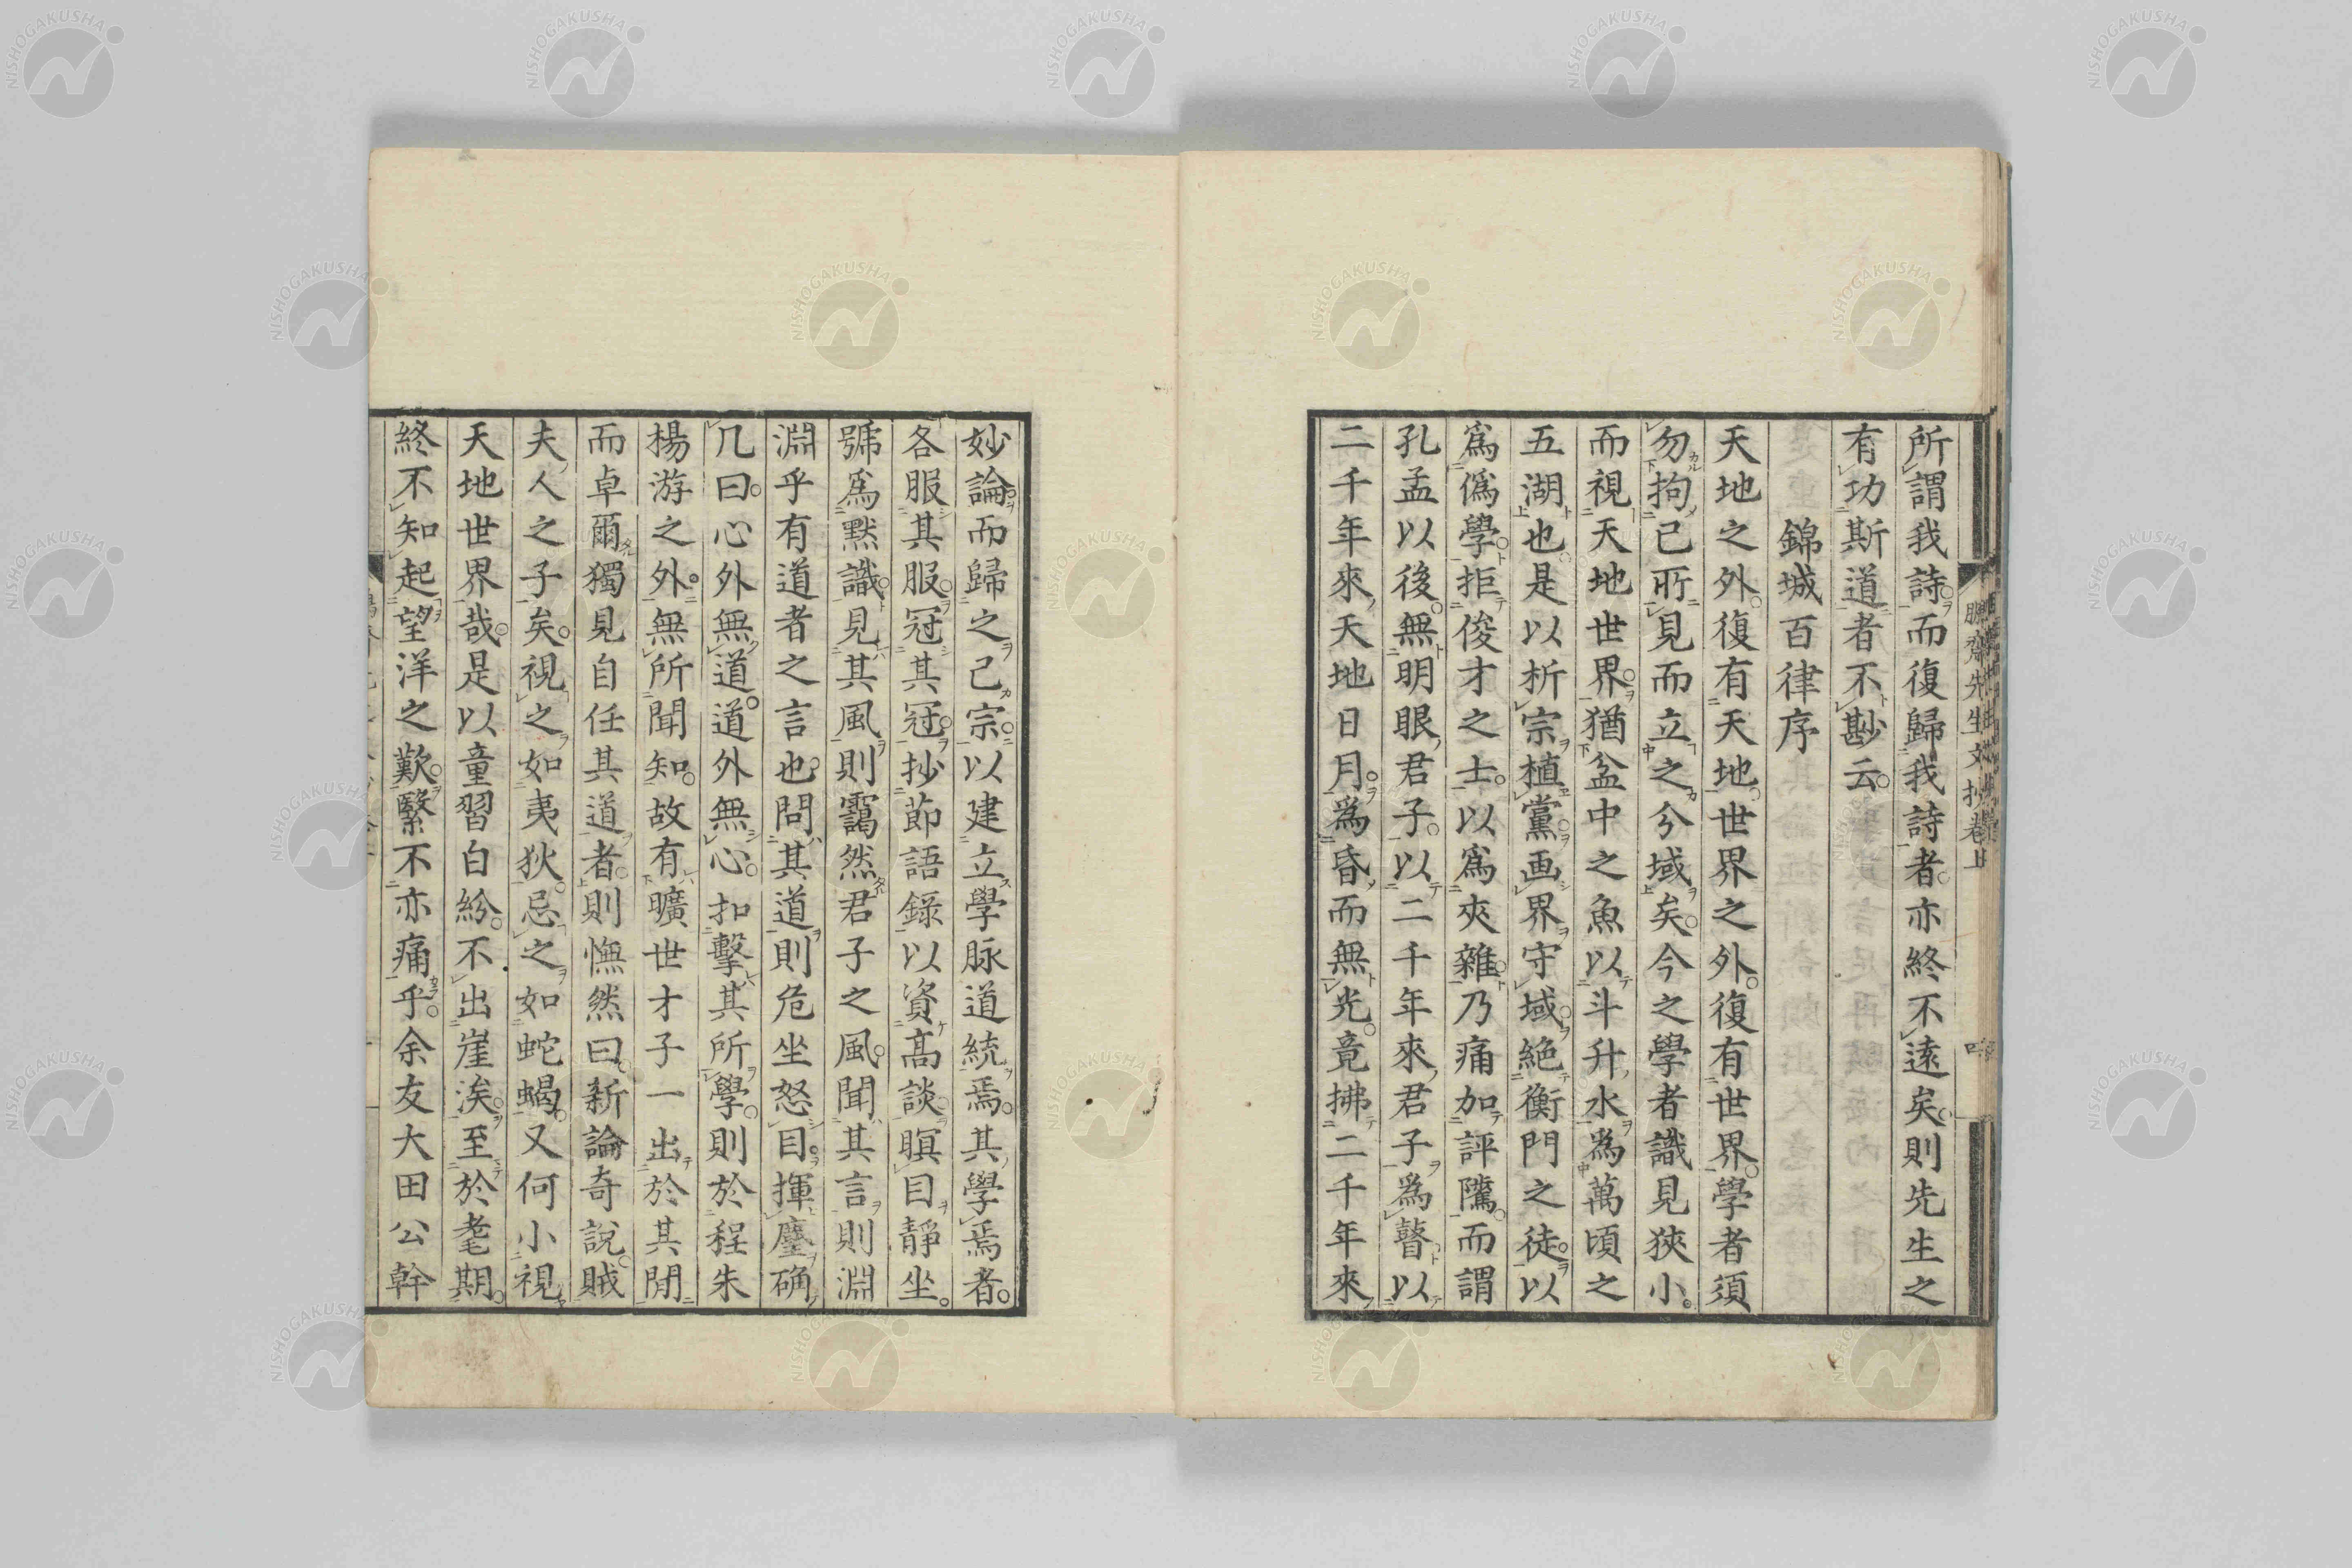 所謂我詩而復歸我詩者亦終不遠矣則先生之
有功斯道者不尠云
錦城百律序
天地之外復有天地世界之外復有世界學者須
勿拘己所見而立之分域矣今之學者識見狹小
而視天地世界猶盆中之魚以斗升水為萬頃之
五湖也是以析宗植黨画界守域絶衡門之徒以
為偽學拒俊才之士以為夾雜乃痛加評隲而謂
孔孟以後無明眼君子以二千年來君子為瞽以
二千年來天地日月為昏而無光竟拂二千年來
妙論而歸之己宗以建立學脉道統焉其學焉者
各服其服冠其冠抄節語錄以資高談瞑目靜坐
號為默識見其風則靄然君子之風聞其言則淵
淵乎有道者之言也問其道則危坐怒目揮麈确
几曰心外無道道外無心扣擊其所學則於程朱
楊游之外無所聞知故有曠世才子一出於其閒
而卓爾獨見自任其道者則憮然曰新論奇說賊
夫人之子矣視之如夷狄忌之如蛇蝎又何小視
天地世界哉是以童習白紛不出崖涘至於耄期
終不知起望洋之歎繄不亦痛乎余友大田公幹
NISHOGAKUSHA